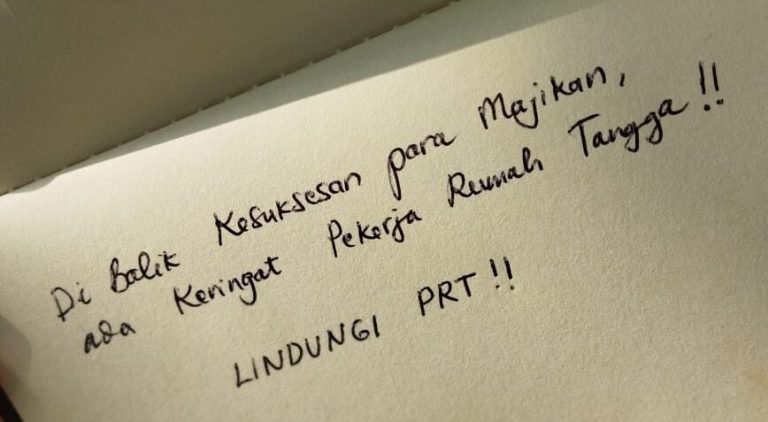 Di Balik Kesuksesan para Majikan,
ada Keringat Pekerja Rumah Tangga!!
LINDUNGI PRT!!